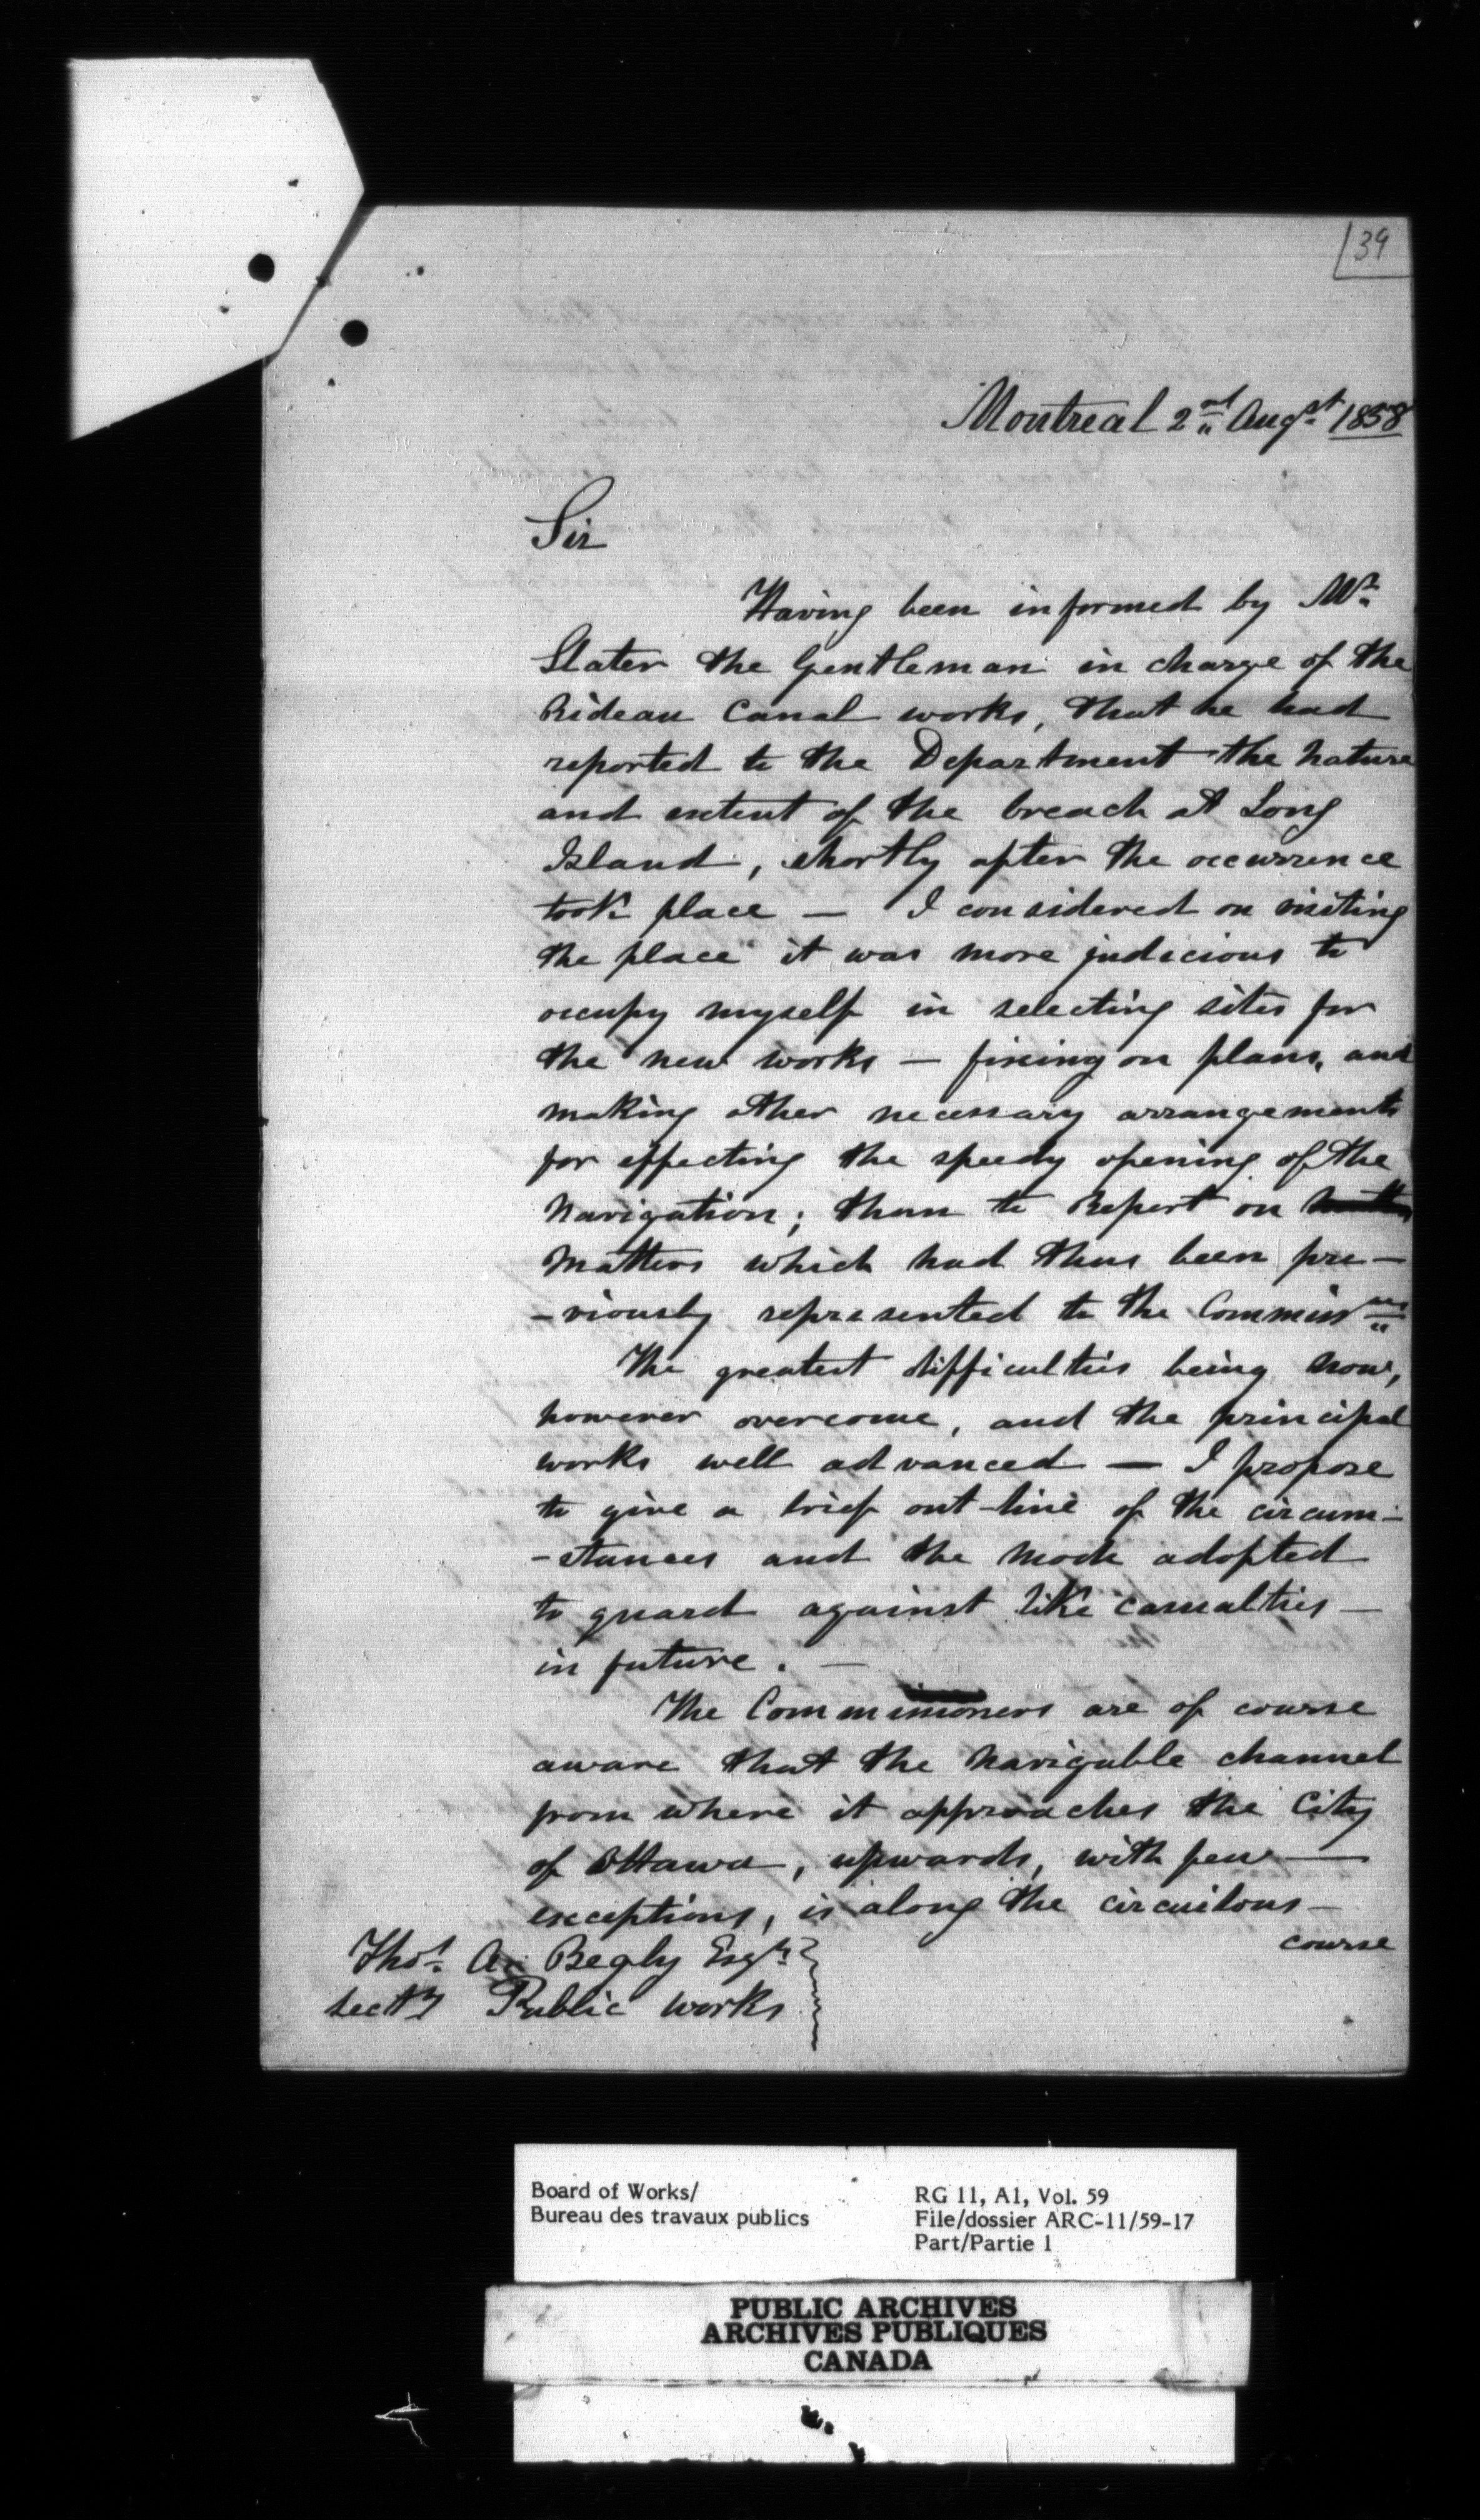 39
Montreal 2nd Augst 1858
Sir
Having been informed by Mr.
Slater the Gentleman in charge of the
Rideau Canal works, that he had
reported to the Department the nature
and extent of the breach at Long
Island, shortly after the occurrence
took place — I considered on visiting
the place it was more judicious to
occupy myself in selecting sites for
the new works — fixing on plans, and
making other necessary arrangements
for effecting the speedy opening of the
Navigation; than to Report on
Matters which had thus been pre-
-viously represented to the Commissrs
The greatest difficulties being now,
however overcome, and the principal
works well advanced — I propose
to give a brief out-line of the circum-
-stances and the mode adopted
to guard against like casualties —
in future. —
The Commissioners are of course
aware that the Navigable channel
from where it approaches the City
of Ottawa, upwards, with few —
exceptions, is along the circuitous —
course
Thos. A. Begly Esqr.
Secty Public Works
Board of Works/
Bureau des travaux publics
RG 11, A1, Vol. 59
File/dossier ARC-11/59-17
Part/Partie 1
PUBLIC ARCHIVES
ARCHIVES PUBLIQUES
CANADA